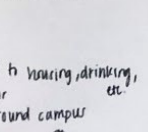 to housing, drinking,
etc.
ound campus